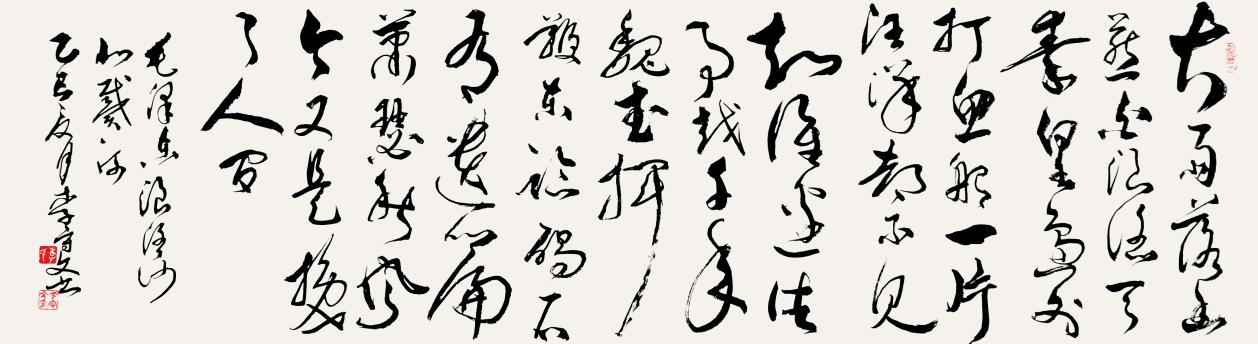 大雨落幽
燕白浪滔天
秦皇岛外
打鱼船一片
汪洋都不见
知谁边往
事越千年
魏武挥
鞭东临碣石
有遗篇
萧瑟秋风
今又是换
了人间
毛泽东浪淘沙
北戴河
乙巳夏月李守文书